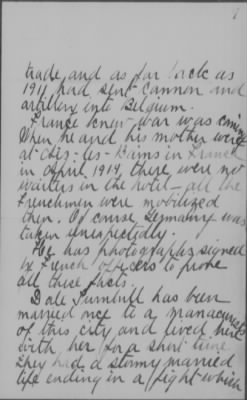 trade, and as far back as
1911 had sent cannon and
artillery into Belgium.
France knew war was coming
When he and his mother were
at Aix-les-Bains in France
in April 1914, there were no
waiters in the hotel - all the
Frenchmen were mobilized
then. Of course, Germany was
taken unexpectedly.
He has photographs signed
by French officers to prove
all these facts.
Dale Turnbull has been
married once to a manacurest
of this city and lived
with her for a short time
They had a stormy married
life ending in a fight which